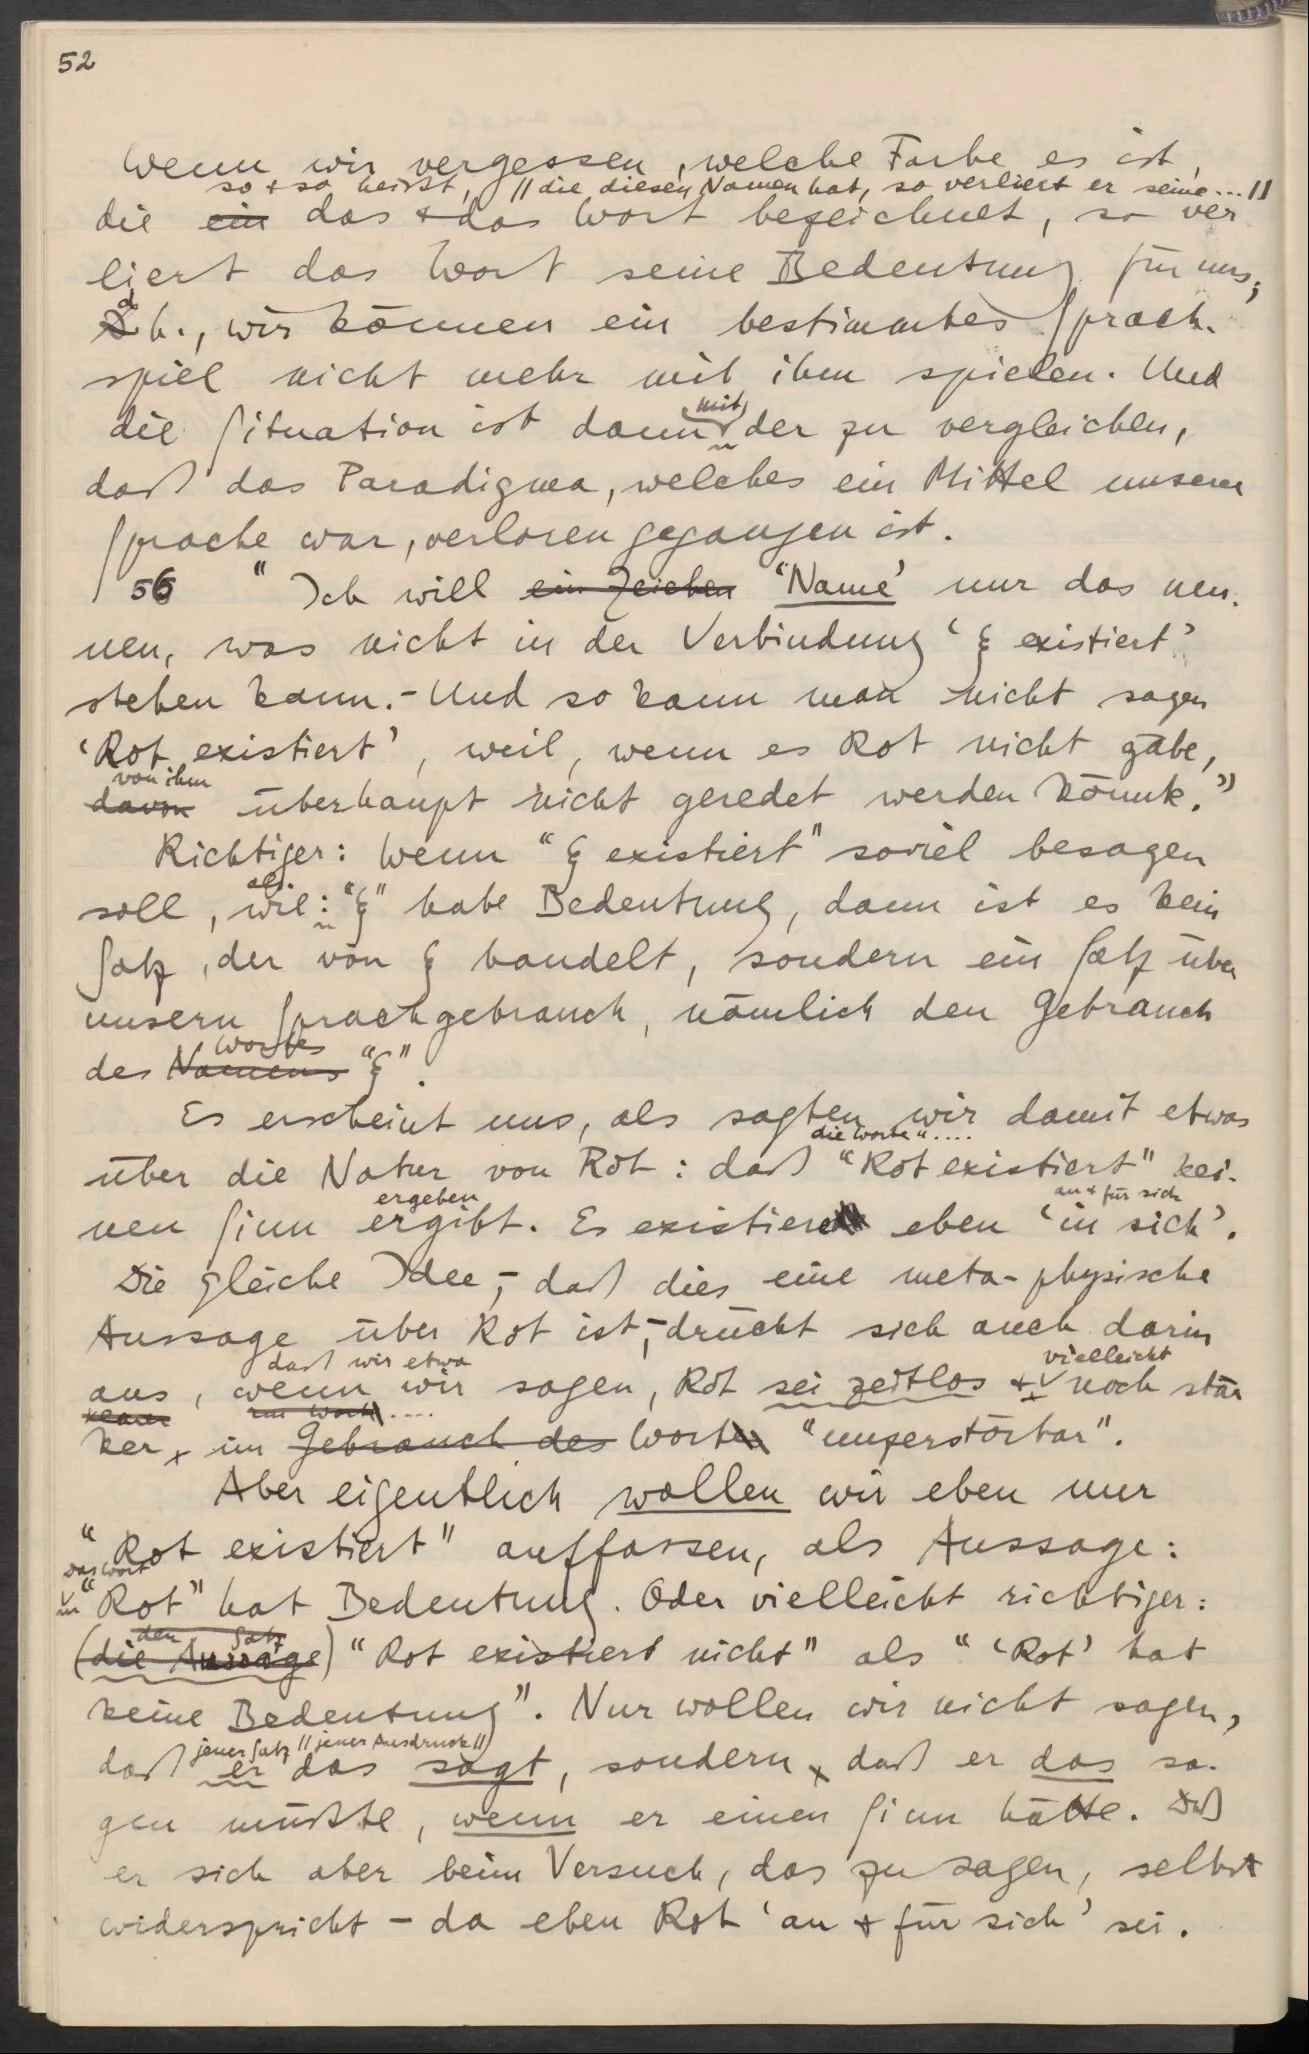 52
Wenn wir vergessen, welche Farbe es ist,
so + so heißt, // die diesen Namen hat, so verliert er seine ... //
die ein das + das Wort bezeichnet, so ver
liert das Wort seine Bedeutung für uns;
d
h., wir können ein bestimmtes Sprach-
spiel nicht mehr mit ihm spielen. Und
mit
die Situation ist dann der zu vergleichen,
daß das Paradigma, welches ein Mittel unserer
Sprache war, verloren gegangen ist.
56 "Ich will ein Zeichen 'Name' nur das nen-
nen, was nicht in der Verbindung 'ξ existiert'
stehen kann. – Und so kann man nicht sagen
'Rot existiert', weil, wenn es Rot nicht gäbe,
von ihm
davon überhaupt nicht geredet werden könnte."
Richtiger: Wenn "ξ existiert" soviel besagen
als
soll, wie: "ξ" habe Bedeutung, dann ist es kein
Satz, der von ξ handelt, sondern ein Satz über
unsern Sprachgebrauch, nämlich den Gebrauch
Wortes
des Namens "ξ".
Es erscheint uns, als sagten wir damit etwas
die Worte "....
über die Natur von Rot: daß "Rot existiert" kei-
ergeben an + für sich
nen Sinn ergibt. Es existiere eben 'in sich'.
Die gleiche Idee, – daß dies eine meta-physische
Aussage über Rot ist, – drückt sich auch darin
daß wir etwa vielleicht
aus, wenn wir sagen, Rot sei zeitlos + noch stär
klarer im Wort ....
ker, im Gebrauch des Worten "unzerstörbar".
Aber eigentlich wollen wir eben nur
"Rot existiert" auffassen, als Aussage:
das Wort
"Rot" hat Bedeutung. Oder vielleicht richtiger:
den Satz
(die Aussage) "Rot existiert nicht" als "'Rot' hat
keine Bedeutung". Nur wollen wir nicht sagen,
jener Satz // jener Ausdruck //
daß er das sagt, sondern, daß er das sa-
gen müßte, wenn er einen Sinn hätte. Daß
er sich aber beim Versuch, das zu sagen, selbst
widerspricht – da eben Rot 'an + für sich' sei.